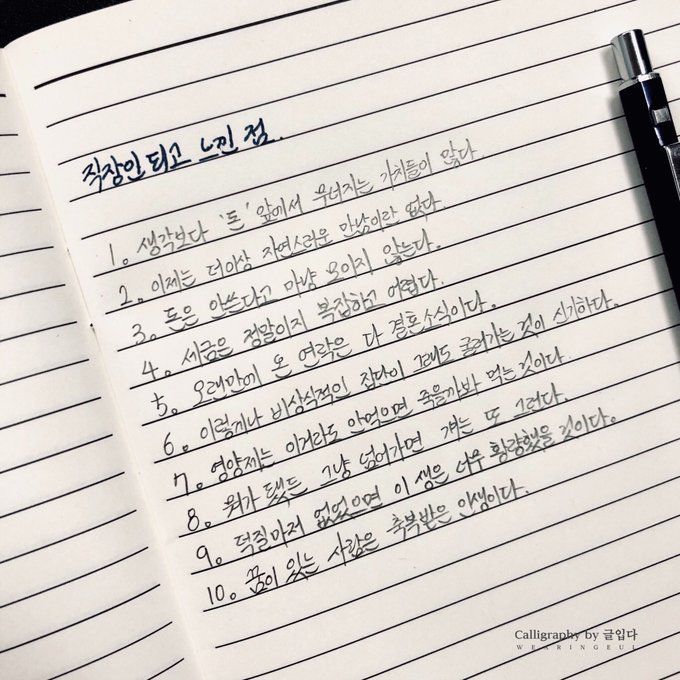 직장인 되고 느낀 점.
1. 생각보다 '돈' 앞에서 무너지는 가치들이 많다.
2. 이제는 더이상 자연스러운 만남이란 없다.
3. 돈은 안쓴다고 마냥 모이지 않는다.
4. 세금은 정말이지 복잡하고 어렵다.
5. 오랜만에 온 연락은 다 결혼소식이다.
6. 이렇게나 비상식적인 집단이 그래도 굴러가는 것이 신기하다.
7. 영양제는 이거라도 안먹으면 죽을까봐 먹는 것이다.
8. 뭐가 됐든 그냥 넘어가면 걔는 또 그런다.
9. 덕질마저 없었으면 이 생은 너무 황량했을 것이다.
10. 꿈이 있는 사람은 축복받은 인생이다.
Calligraphy by 글입다
WEARINGEUL